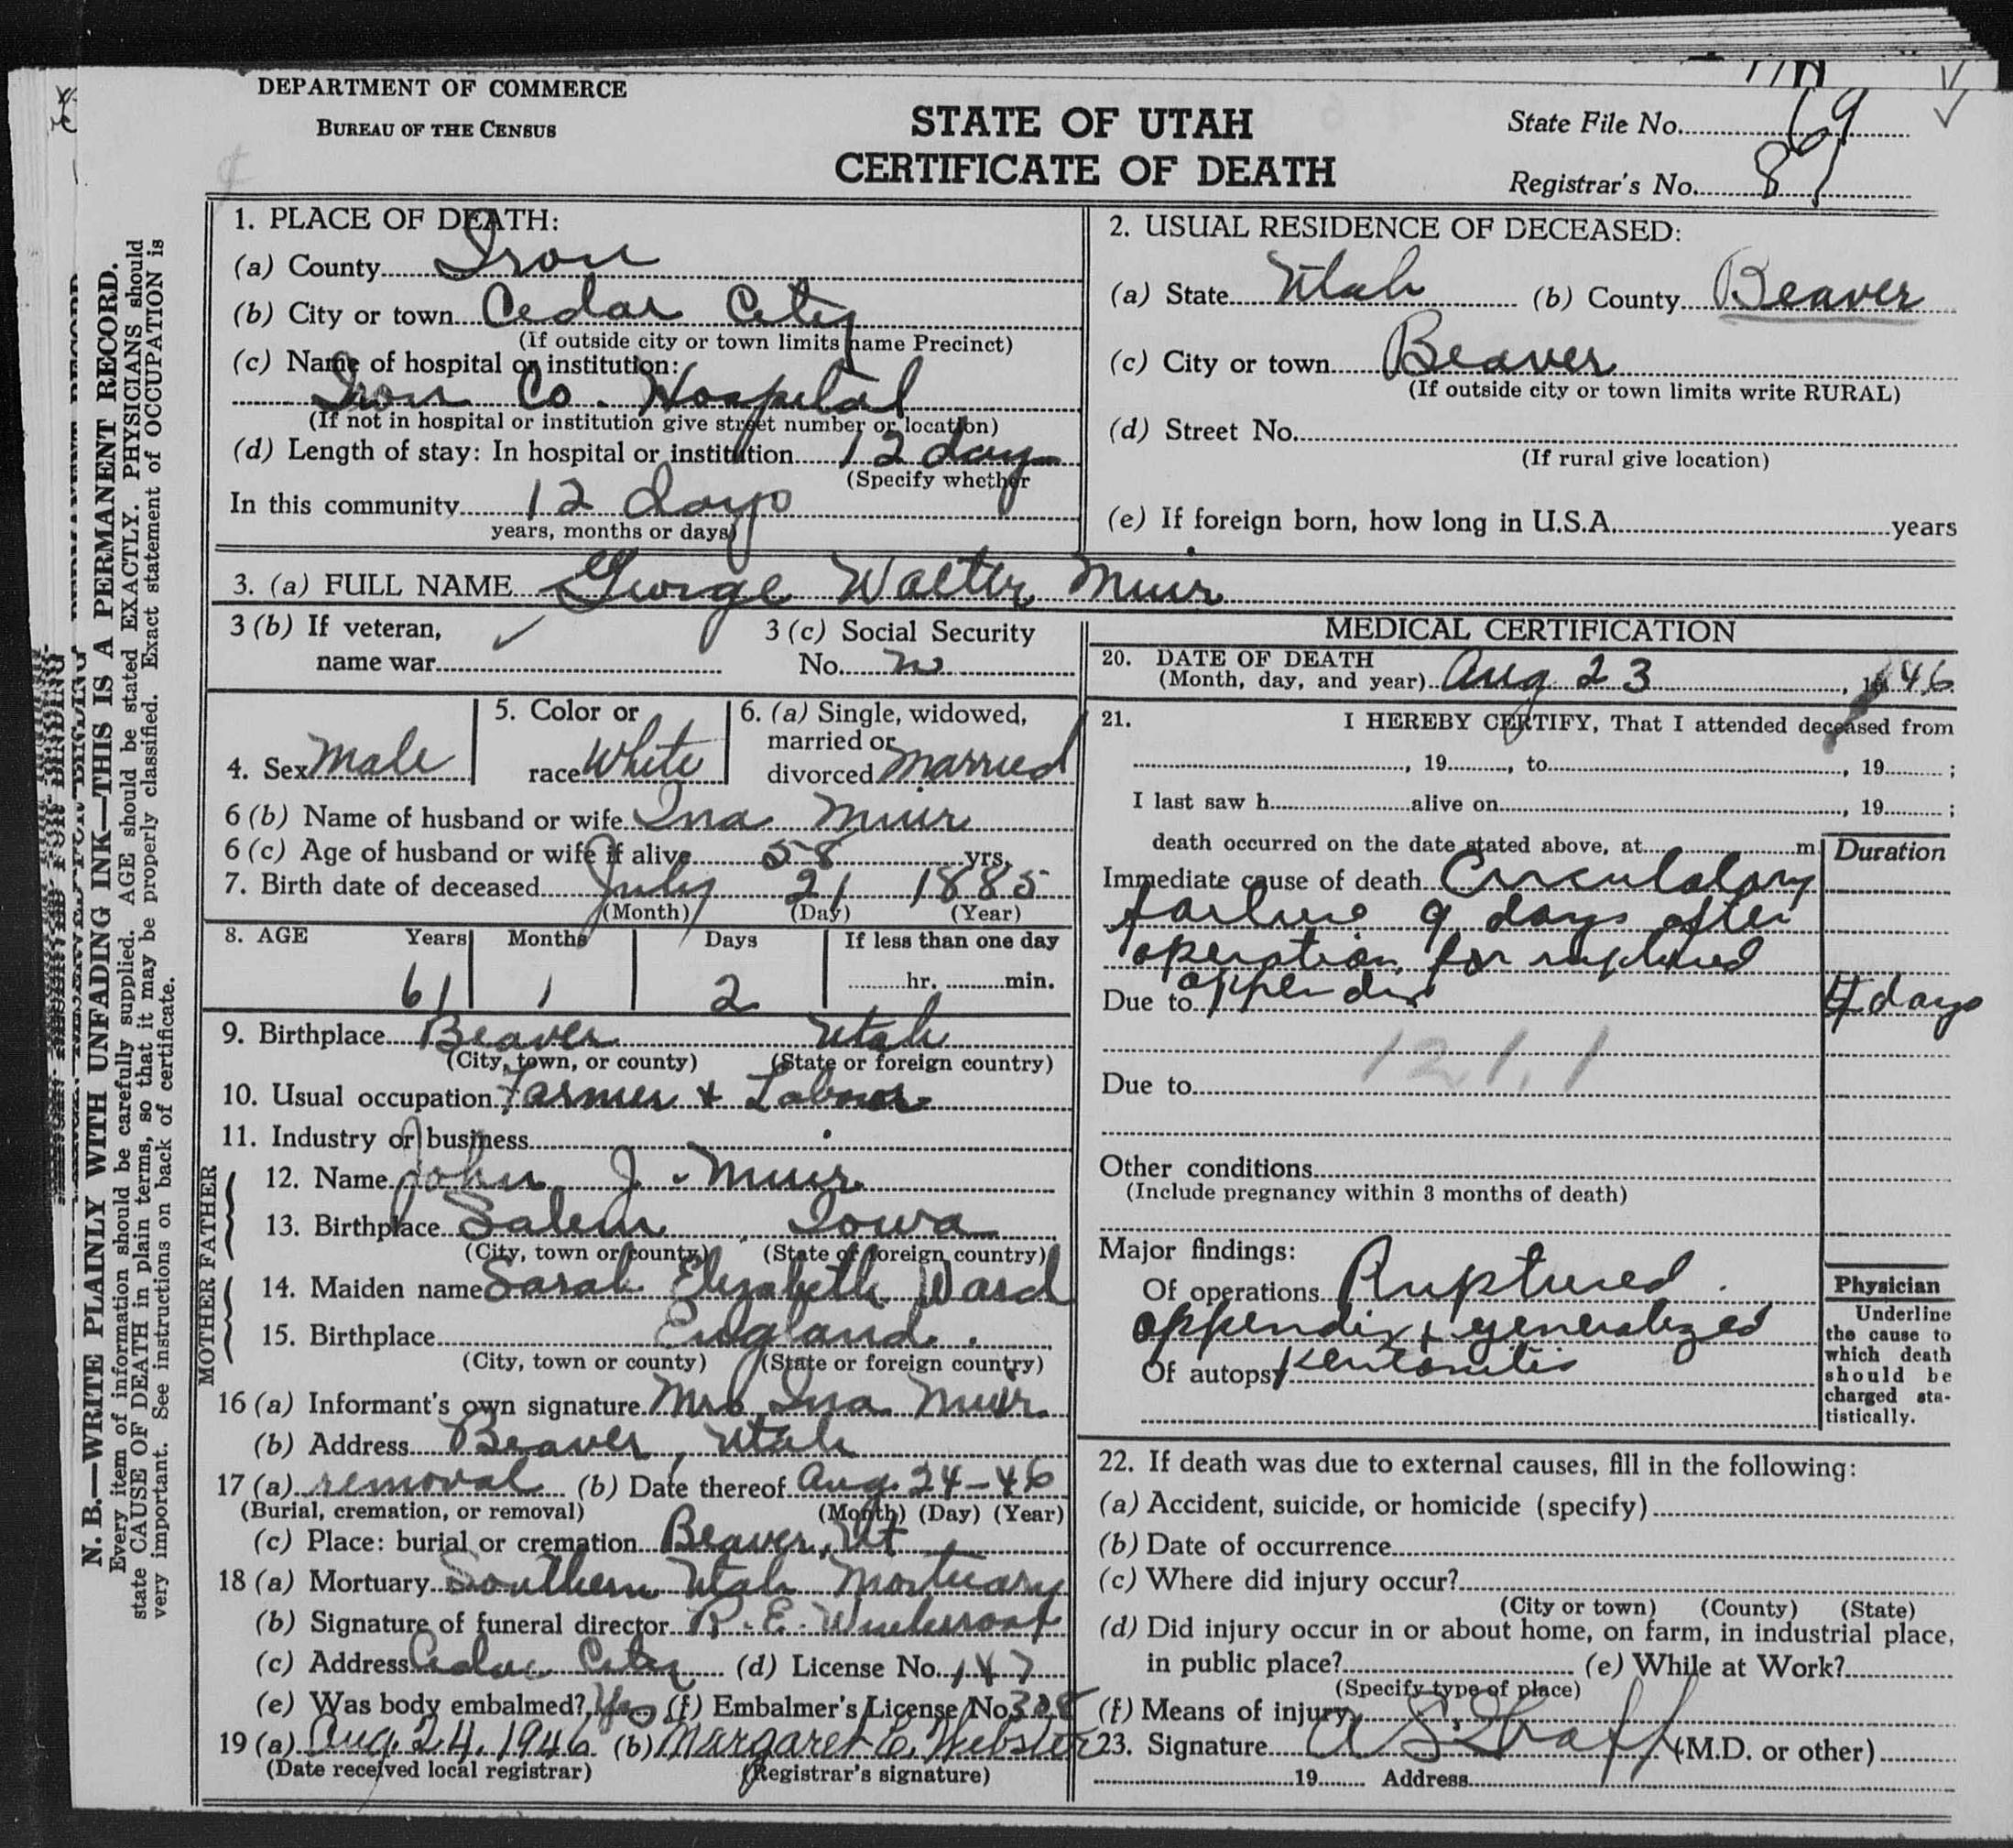 DEPARTMENT OF COMMERCE
BUREAU OF THE CENSUS
STATE OF UTAH
CERTIFICATE OF DEATH
State File No. 69
Registrar's No. 81
N. B.—WRITE PLAINLY WITH UNFADING INK—THIS IS A PERMANENT RECORD.
Every item of information should be carefully supplied. AGE should be stated EXACTLY. PHYSICIANS should
state CAUSE OF DEATH in plain terms, so that it may be properly classified. Exact statement of OCCUPATION is
very important. See instructions on back of certificate.
1. PLACE OF DEATH:
(a) County Iron
(b) City or town Cedar City
(If outside city or town limits name Precinct)
(c) Name of hospital or institution:
Iron Co. Hospital
(If not in hospital or institution give street number or location)
(d) Length of stay: In hospital or institution 12 days
(Specify whether
In this community 12 days
years, months or days)
2. USUAL RESIDENCE OF DECEASED:
(a) State Utah (b) County Beaver
(c) City or town Beaver
(If outside city or town limits write RURAL)
(d) Street No.
(If rural give location)
(e) If foreign born, how long in U.S.A. years
3. (a) FULL NAME George Walter Muir
3 (b) If veteran,
name war
3 (c) Social Security
No. no
4. Sex Male
5. Color or
race White
6. (a) Single, widowed,
married or
divorced Married
6 (b) Name of husband or wife Ina Muir
6 (c) Age of husband or wife if alive 58 yrs.
7. Birth date of deceased July 21 1885
(Month) (Day) (Year)
8. AGE Years Months Days If less than one day
61 1 2 hr. min.
9. Birthplace Beaver Utah
(City, town, or county) (State or foreign country)
10. Usual occupation Farmer + Labour
11. Industry or business
FATHER
12. Name John J. Muir
13. Birthplace Salem, Iowa
(City, town or county) (State of foreign country)
MOTHER
14. Maiden name Sarah Elizabeth Ward
15. Birthplace England.
(City, town or county) (State or foreign country)
16 (a) Informant's own signature Mrs Ina Muir.
(b) Address Beaver, Utah
17 (a) removal (b) Date thereof Aug. 24-46
(Burial, cremation, or removal) (Month) (Day) (Year)
(c) Place: burial or cremation Beaver, Ut
18 (a) Mortuary Southern Utah Mortuary
(b) Signature of funeral director R. E.
(c) Address Cedar City (d) License No. 147
(e) Was body embalmed? Yes (f) Embalmer's License No. 308
19 (a) Aug. 24, 1946 (b) Margaret C. Webster
(Date received local registrar) (Registrar's signature)
MEDICAL CERTIFICATION
20. DATE OF DEATH
(Month, day, and year) Aug 23, 1946
21. I HEREBY CERTIFY, That I attended deceased from
, 19 , to , 19 ;
I last saw h alive on , 19 ;
death occurred on the date stated above, at m. Duration
Immediate cause of death Circulatory
failure 9 days after
operation for ruptured
Due to appendix days
12 1.1
Due to
Other conditions
(Include pregnancy within 3 months of death)
Major findings:
Of operations Ruptured
appendix + generalized
Of autopsy peritonitis
Physician
Underline
the cause to
which death
should be
charged sta-
tistically.
22. If death was due to external causes, fill in the following:
(a) Accident, suicide, or homicide (specify)
(b) Date of occurrence
(c) Where did injury occur?
(City or town) (County) (State)
(d) Did injury occur in or about home, on farm, in industrial place,
in public place? (e) While at Work?
(Specify type of place)
(f) Means of injury
23. Signature A S Graff (M.D. or other)
19 Address